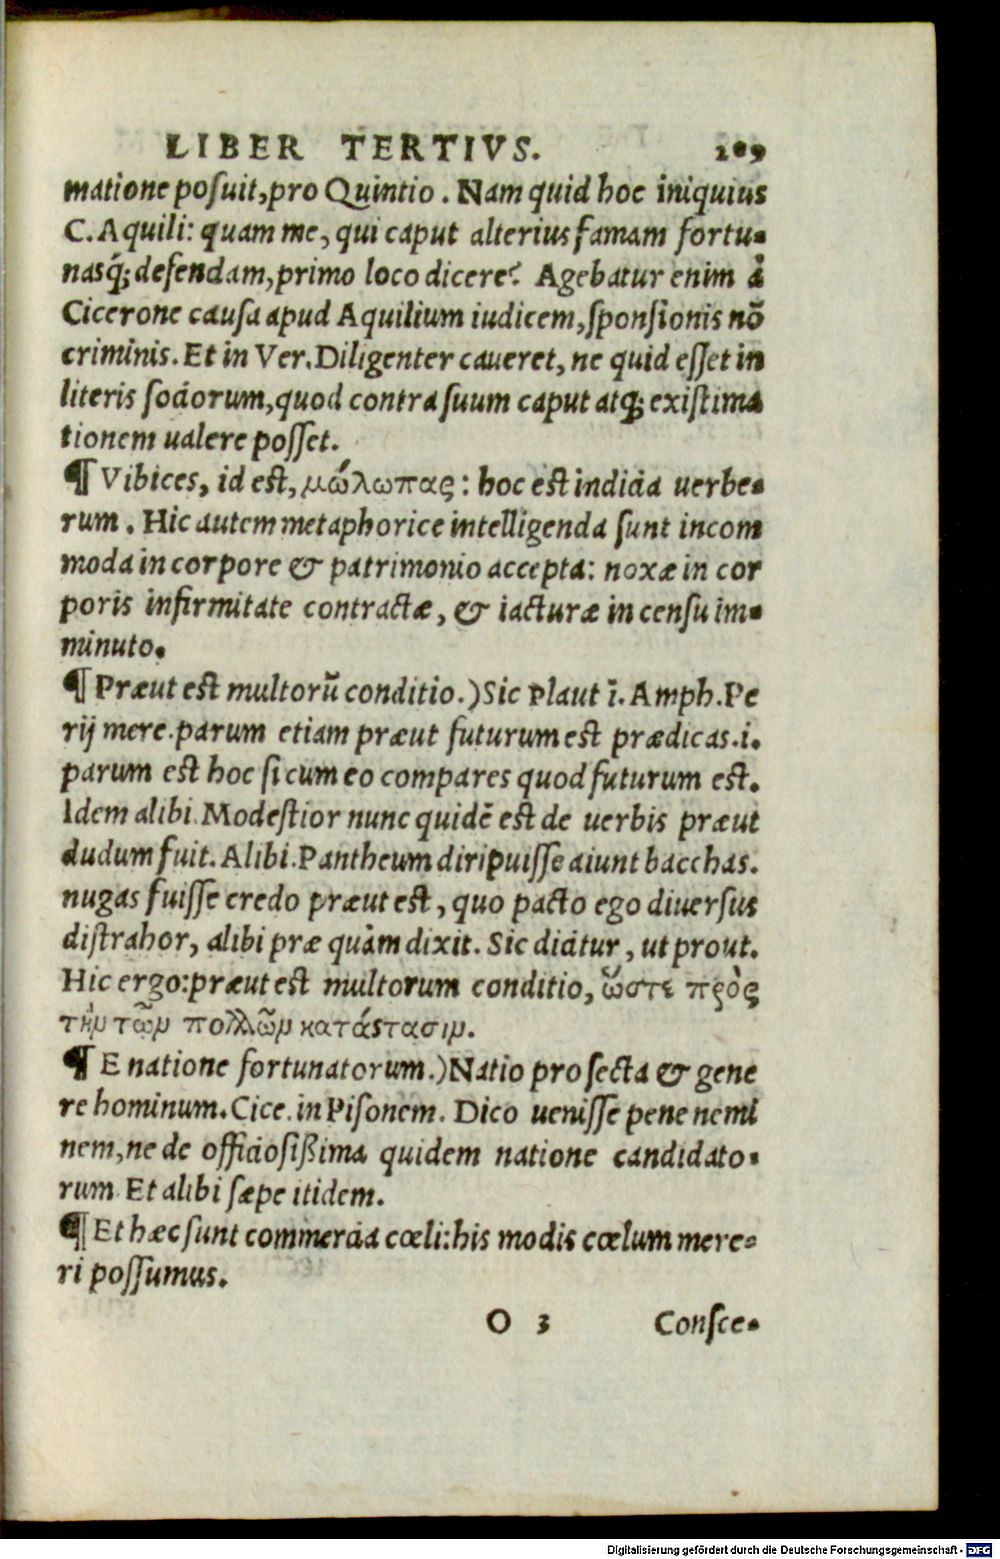 LIBER TERTIVS. 209
matione posuit,pro Quintio . Nam quid hoc iniquius
C. Aquili: quam me, qui caput alterius famam fortu-
nasq́; defendam,primo loco dicere? Agebatur enim à
Cicerone causa apud Aquilium iudicem,sponsionis nõ
criminis. Et in Ver. Diligenter caueret, ne quid esset in
literis sociorum,quod contra suum caput atq; existima
tionem ualere posset.
¶ Vibices, id est, μώλωπας : hoc est indicia uerbe-
rum . Hic autem metaphorice intelligenda sunt incom
moda in corpore & patrimonio accepta: noxæ in cor
poris infirmitate contractæ, & iacturæ in censu im-
minuto.
¶ Præut est multorũ conditio.) Sic Plaut ĩ. Amph. Pe
rij mere. parum etiam præut futurum est prædicas.i.
parum est hoc si cum eo compares quod futurum est.
Idem alibi. Modestior nunc quidẽ est de uerbis præut
dudum fuit. Alibi. Pantheum diripuisse aiunt bacchas.
nugas fuisse credo præut est, quo pacto ego diuersus
distrahor, alibi præ quàm dixit. Sic dicitur, ut prout.
Hic ergo:præut est multorum conditio, ὥστε πρὸς
τὴν τῶν πολλῶν κατάστασιν.
¶ E natione fortunatorum.) Natio pro secta & gene
re hominum. Cice. in Pisonem. Dico uenisse pene nemi
nem,ne de officiosißima quidem natione candidato-
rum. Et alibi sæpe itidem.
¶ Et hæc sunt commercia cœli:his modis cœlum mere-
ri possumus.
O 3 Consce-
Digitalisierung gefördert durch die Deutsche Forschungsgemeinschaft - DFG